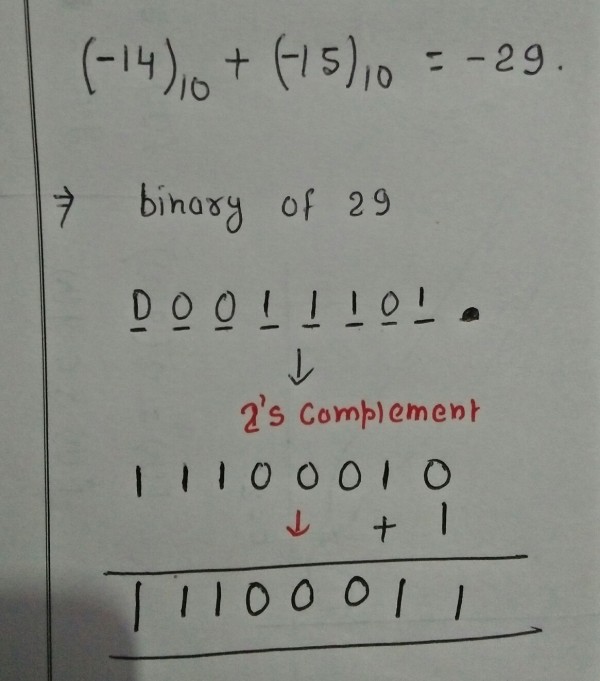 (-14)₁₀ + (-15)₁₀ = -29.
⇒ binary of 29
0 0 0 1 1 1 0 1 .
↓
2's complement
1 1 1 0 0 0 1 0
↓ + 1
1 1 1 0 0 0 1 1